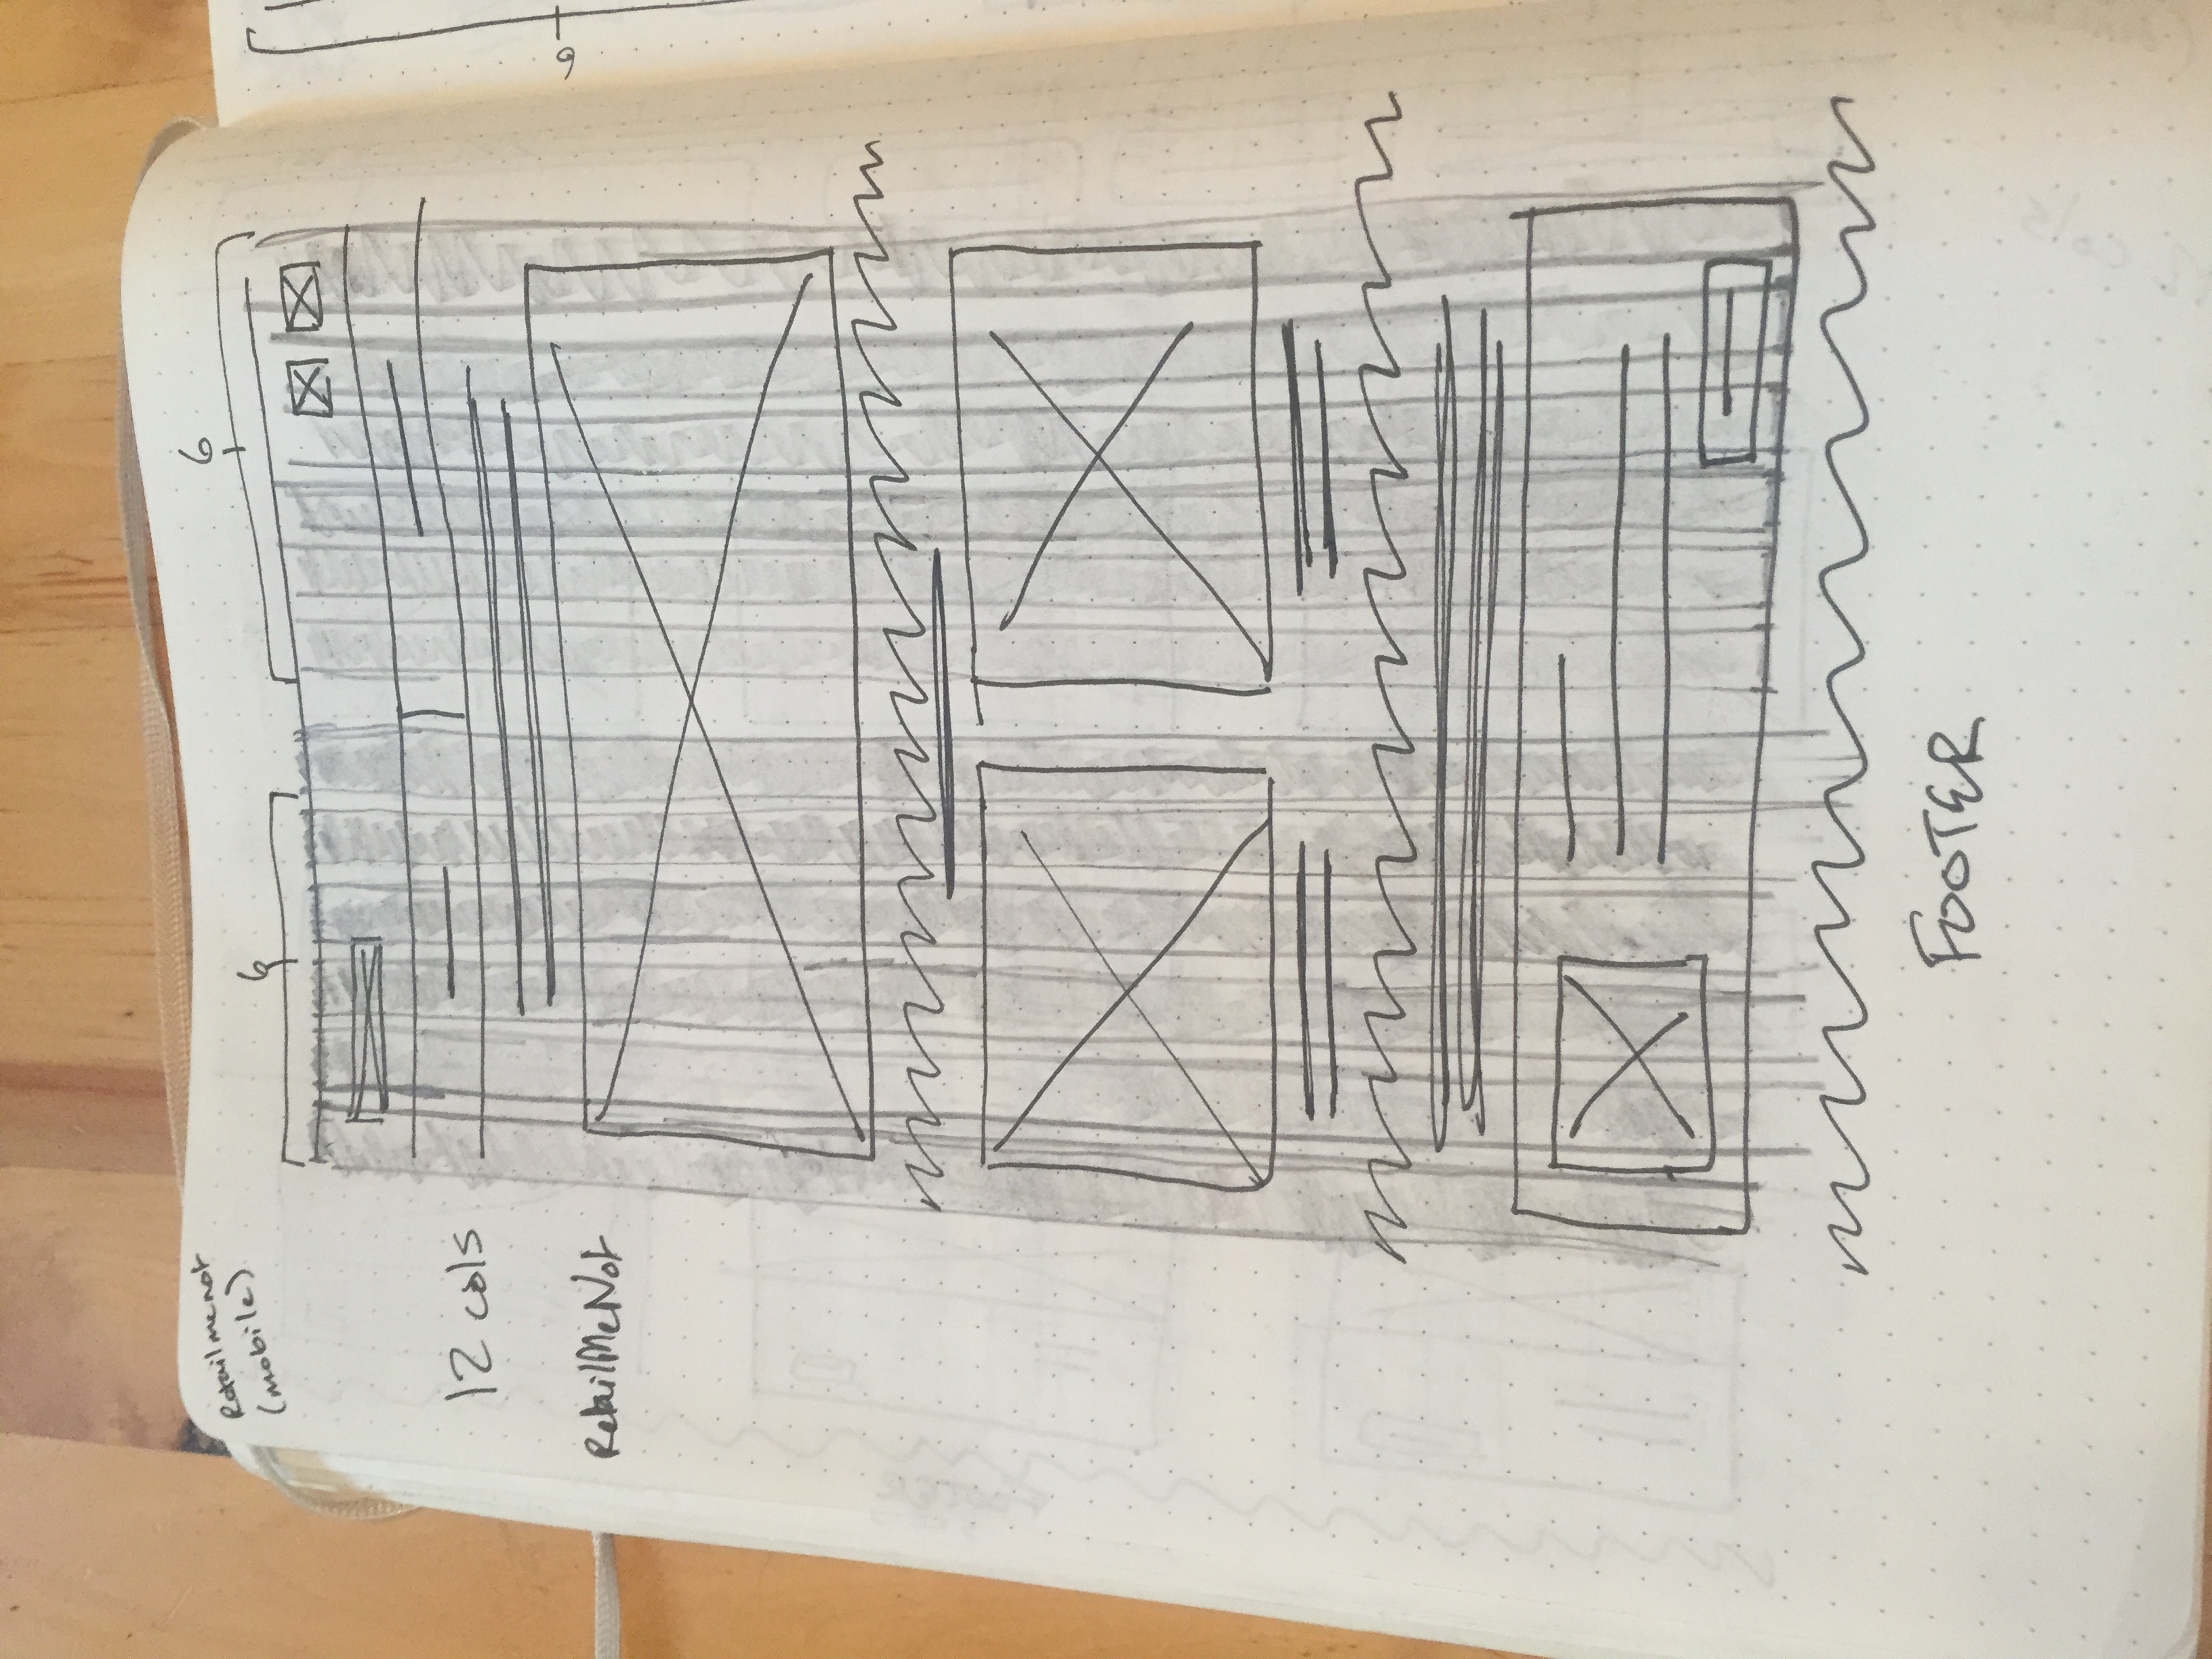 Retailmenot
(mobile)
12 cols
RetailMeNot
6
6
FOOTER
6